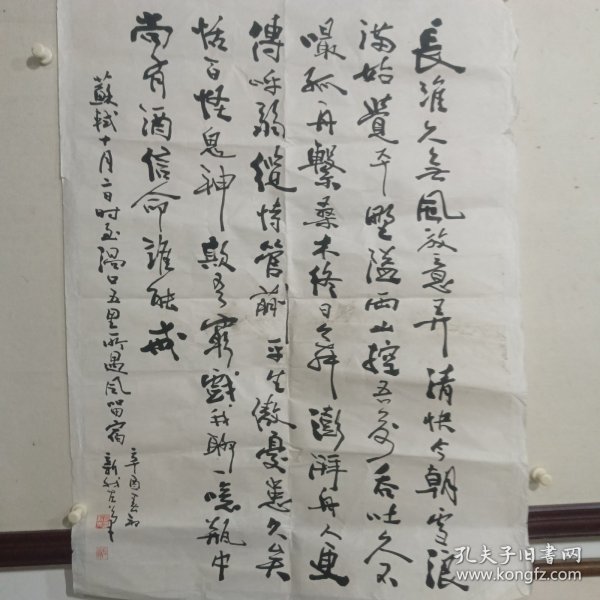 長淮久無風放意弄清快今朝雪浪
滿始覺平野隘两山控吾前吞吐久不
嘬孤舟繫桑本終日舞澎湃舟人更
傳呼弱纜恃菅蒯平生傲憂患久矣
恬百怪鬼神欺吾窮戲我聊一噫瓶中
尚有酒信命誰能戒
蘇軾十月二日將至渦口五里所遇風留宿
辛酉
孔夫子旧书网
www.kongfz.com